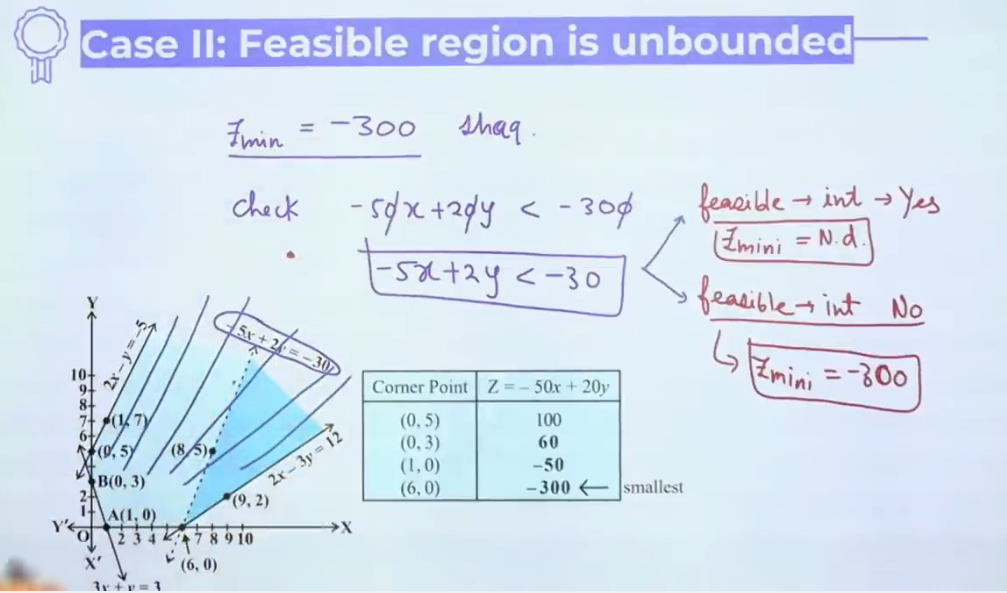 Case II: Feasible region is unbounded
Zmin = -300 shaq.
check -50x+20y < -300
-5x+2y < -30
feasible → int → Yes
Zmini = N.d.
feasible → int No
Zmini = -300
Y
2x – y = –5
-5x + 2y = -30
10
9
8
7
(1, 7)
6
(0, 5)
(8, 5)
2x – 3y = 12
B(0, 3)
2
1
(9, 2)
A(1, 0)
Y' O 2 3 4 7 8 9 10 X
X'
(6, 0)
3x + y = 3
Corner Point Z = – 50x + 20y
(0, 5) 100
(0, 3) 60
(1, 0) –50
(6, 0) –300 ← smallest